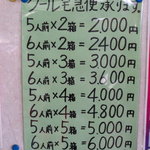 クール宅急便承ります。
5人前×2箱=2,000円
6人前×2箱=2400円
5人前×3箱=3000円
6人前×3箱=3,600円
5人前×4箱=4,000円
6人前×4箱=4,800円
5人前×5箱=5,000円
6人前×5箱=6,000円